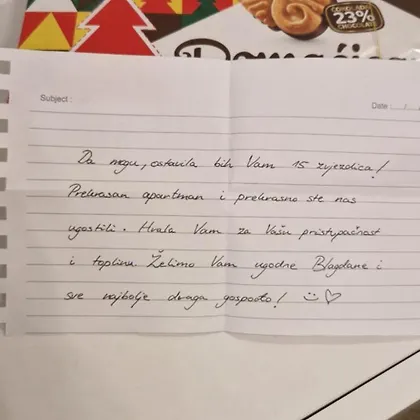 23%
Domaćica
Subject :
Date : ... / ... /
Da mogu, ostavila bih Vam 15 zvjezdica!
Prekrasan apartman i prekrasno ste nas
ugostili. Hvala Vam za Vašu pristupačnost
i toplinu. Želimo Vam ugodne Blagdane i
sve najbolje draga gospođo! ☺♡